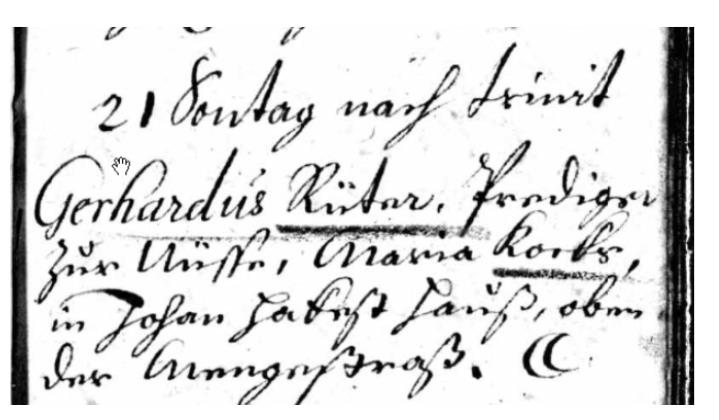 21 Sontag nach Trinit
Gerhardus Rüter, Prediger
zur Nüsse, Maria Kocks,
in Johan Habest Hauß, oben
der Mengestraß.